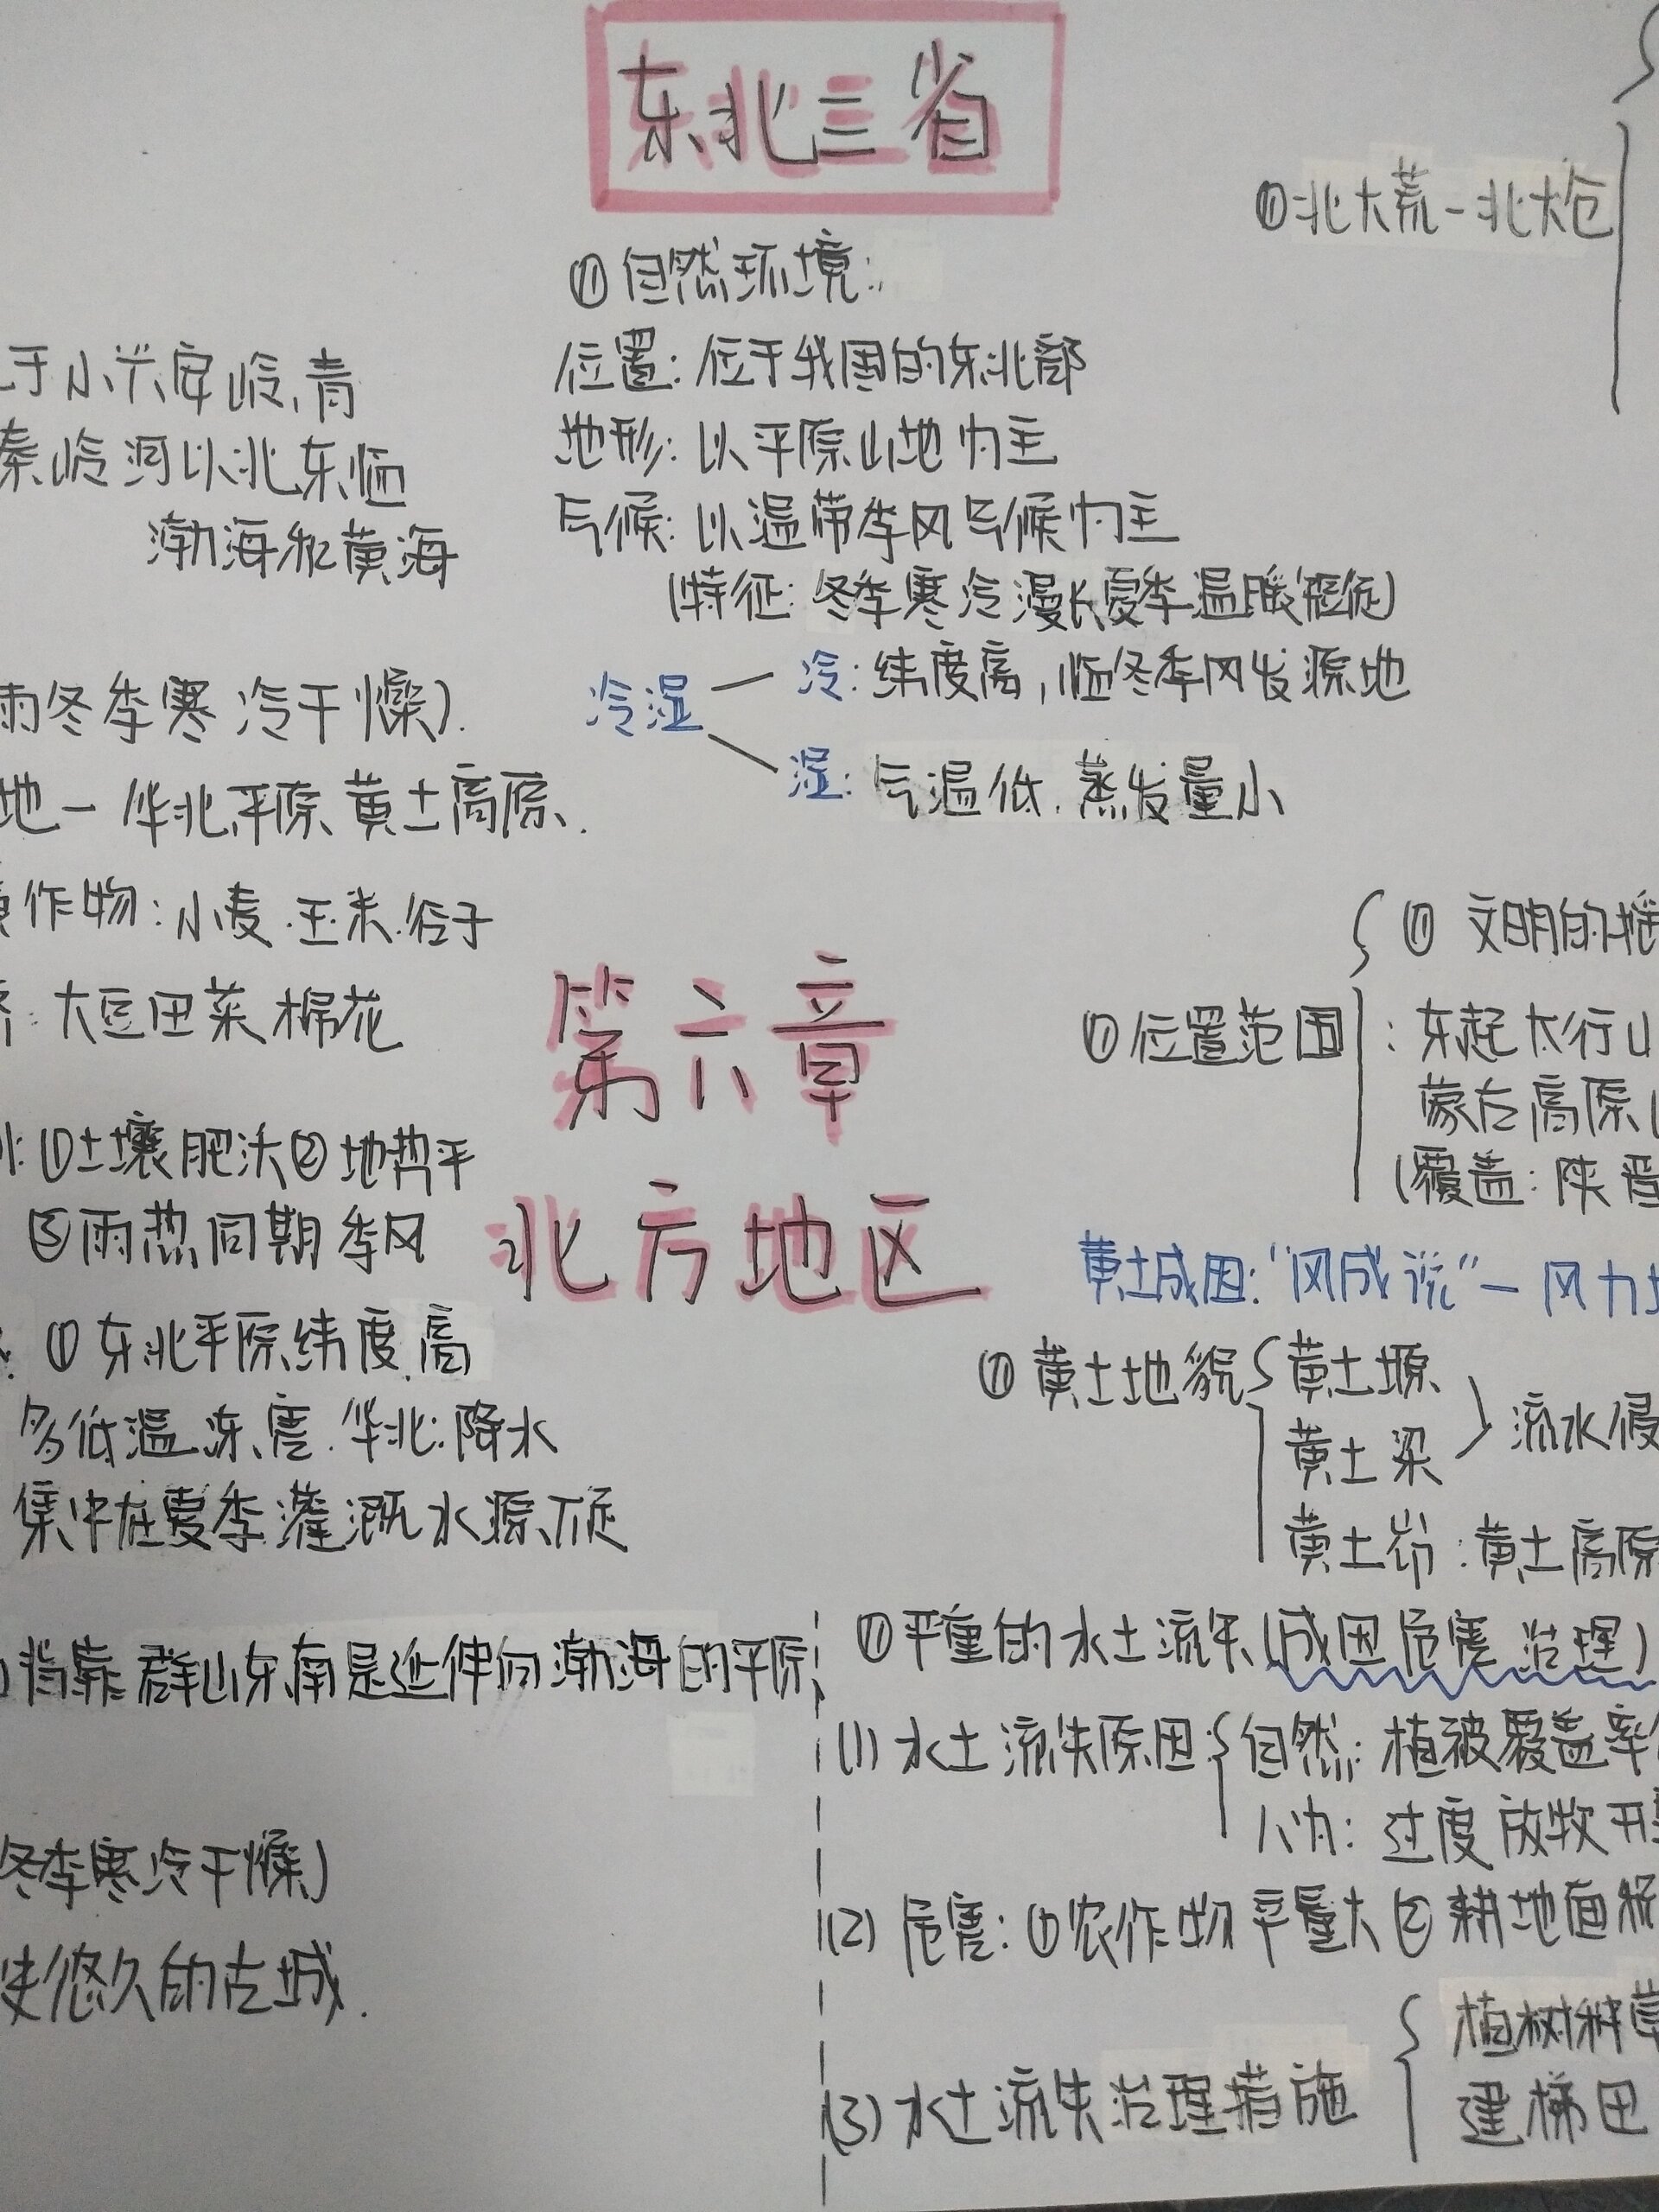 东北三省
①自然环境:
位置:位于我国的东北部
地形:以平原山地为主
气候:以温带季风气候为主
(特征:冬季寒冷漫长夏季温暖短促)
冷湿
冷:纬度高,临冬季风发源地
湿:气温低.蒸发量小
①北大荒-北大仓
于小兴安岭、青
秦岭 以北东临
渤海和黄海
雨冬季寒冷干燥).
地-华北平原黄土高原.
作物:小麦.玉米.谷子
:大豆田菜棉花
:①土壤肥沃②地势平
③雨热同期季风
①东北平原纬度高
多低温冻害.华北:降水
集中在夏季灌溉水源不足
背靠群山东南是延伸向渤海的平原
冬季寒冷干燥)
史悠久的古城.
第六章
北方地区
① 文明的摇
①位置范围:东起太行山
蒙古高原
(覆盖:陕晋
黄土成因:"风成说"-风力
①黄土地貌
黄土塬
黄土梁
流水侵
黄土峁:黄土高原
①严重的水土流失(成因危害治理)
(1)水土流失原因
自然:植被覆盖率
人为:过度放牧开
(2)危害:①农作物 量大②耕地面积
(3)水土流失治理措施
植树种草
建梯田